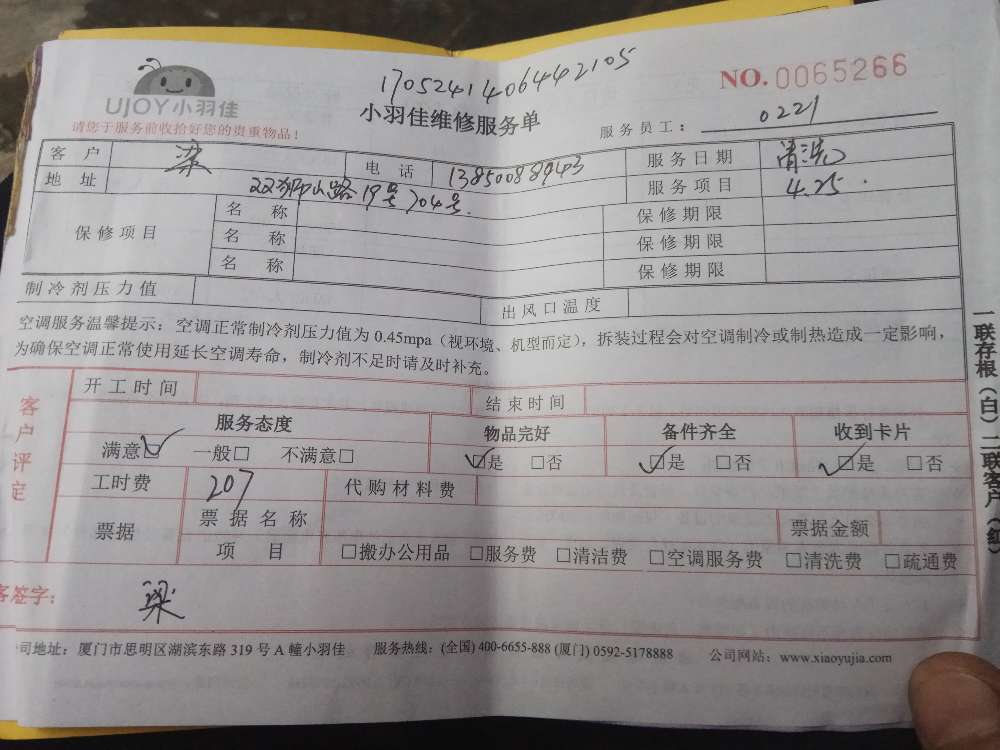 17052414064442105
NO.0065266
UJOY小羽佳
小羽佳维修服务单
请您于服务前收拾好您的贵重物品！
服务员工： 0221
客 户 梁 电 话 13850088943 服务日期 清洗
地 址 双狮山路19号704号. 服务项目 4.25.
保修项目 名 称 保修期限
名 称 保修期限
名 称 保修期限
制冷剂压力值 出风口温度
空调服务温馨提示：空调正常制冷剂压力值为 0.45mpa（视环境、机型而定），拆装过程会对空调制冷或制热造成一定影响，
为确保空调正常使用延长空调寿命，制冷剂不足时请及时补充。
客户评定
开工时间 结束时间
服务态度 物品完好 备件齐全 收到卡片
满意☑ 一般□ 不满意□ ☑是 □否 ☑是 □否 ☑是 □否
工时费 207 代购材料费
票据 票据名称 票据金额
项 目 □搬办公用品 □服务费 □清洁费 □空调服务费 □清洗费 □疏通费
客签字： 梁
司地址：厦门市思明区湖滨东路 319 号 A 幢小羽佳 服务热线：(全国) 400-6655-888 (厦门) 0592-5178888 公司网站：www.xiaoyujia.com
一联存根（白）二联客户（红）